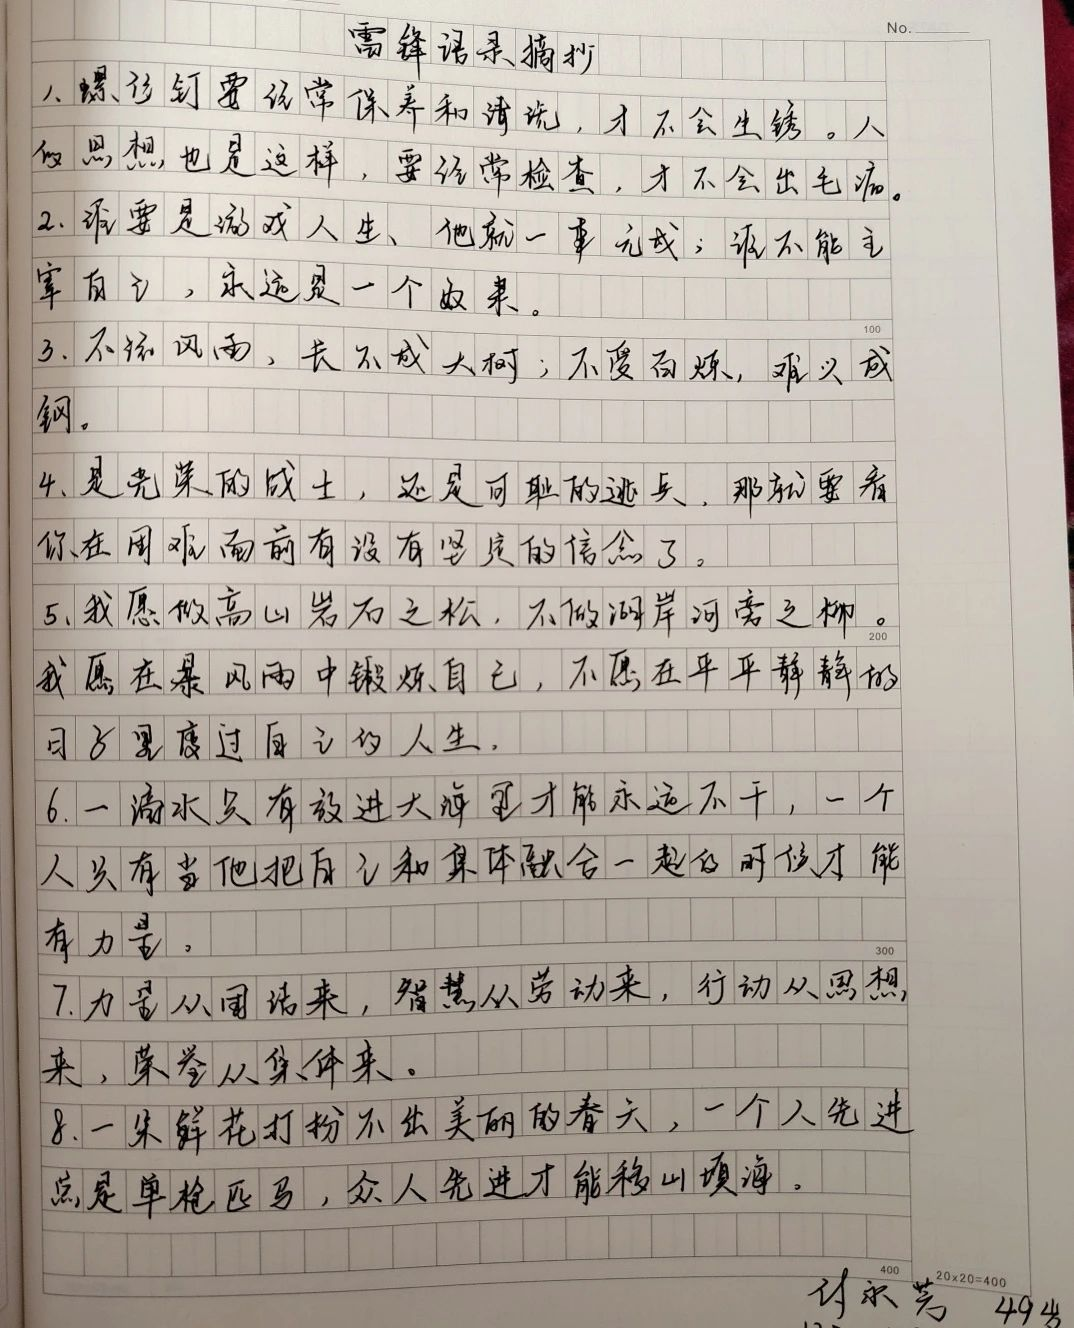 No.
雷锋语录摘抄
1、螺丝钉要经常保养和清洗，才不会生锈。人
的思想也是这样，要经常检查，才不会出毛病。
2.谁要是游戏人生、他就一事无成；谁不能主
宰自己，永远是一个奴隶。
100
3.不经风雨，长不成大树；不受百炼，难以成
钢。
4、是光荣的战士，还是可耻的逃兵，那就要看
你在困难面前有没有坚定的信念了。
5、我愿做高山岩石之松，不做湖岸河旁之柳。
200
我愿在暴风雨中锻炼自己，不愿在平平静静的
日子里度过自己的人生。
6.一滴水只有放进大海里才能永远不干，一个
人只有当他把自己和集体融合一起的时候才能
有力量。
300
7.力量从团结来，智慧从劳动来，行动从思想
来，荣誉从集体来。
8.一朵鲜花打扮不出美丽的春天，一个人先进
总是单枪匹马，众人先进才能移山填海。
400
20×20=400
付永 49岁